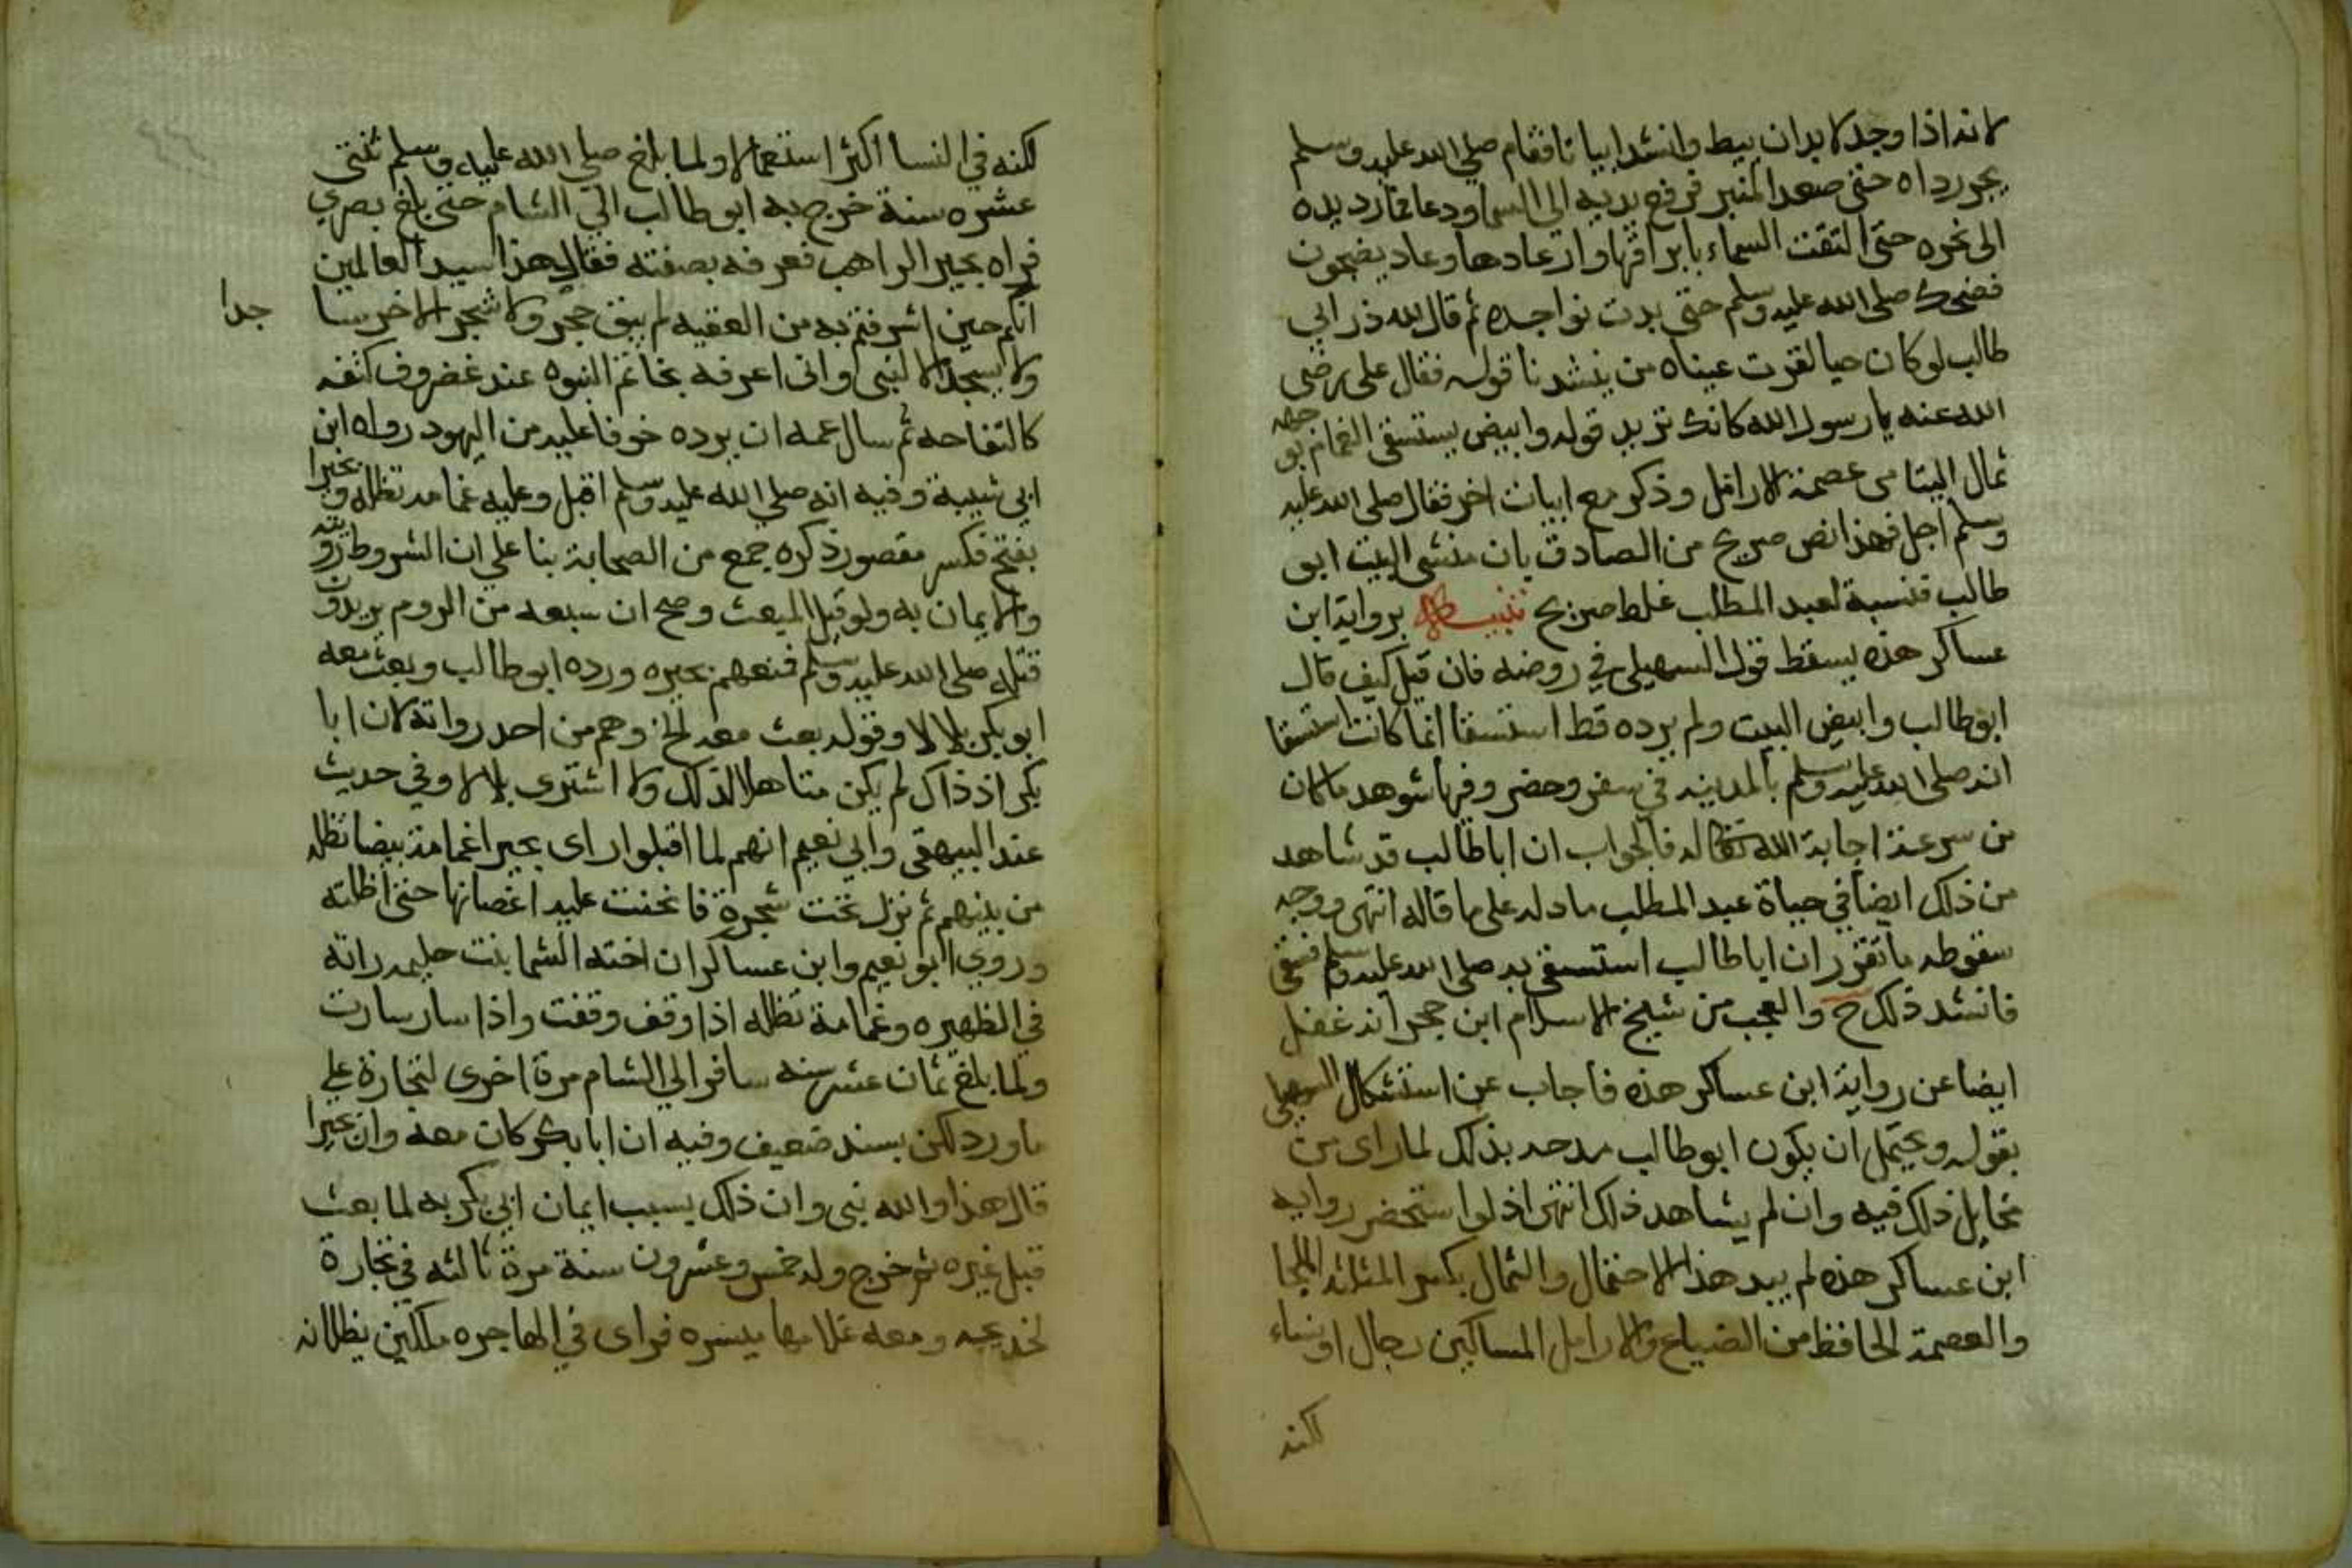 لانه اذا وجد لا بد ان يبط وانشد ابياتا فقام صلى الله عليه وسلم
يجر رداه حتى صعد المنبر فرفع يديه الى السما ودعا فما رد يده
الى نحره حتى التقت السماء بابراقها وارعادها وعاد يضجون
فضحك صلى الله عليه وسلم حتى بدت نواجده ثم قال لله در ابي
طالب لو كان حيا لقرت عيناه من ينشدنا قوله فقال على رضى
الله عنه يا رسول الله كانك تريد قوله وابيض يستسقى الغمام بوجهه
ثمال اليتامى عصمة الارامل وذكر مع ابيات اخر فقال صلى الله عليه
وسلم اجل فهذا نص صريح من الصادق بان منشى البيت ابو
طالب فنسبة لعبد المطلب غلط صريح تنبيه برواية ابن
عساكر هذه يسقط قول السهيلى في روضه فان قيل كيف قال
ابو طالب وابيض البيت ولم يرده قط استسقا انما كانت استسقا
انه صلى الله عليه وسلم بالمدينه في سفر وحضر وفيها شوهد ما كان
من سرعة اجابة الله تعالى له فالجواب ان ابا طالب قد شاهد
من ذلك ايضا في حياة عبد المطلب ما دله على ما قاله انتهى ووجه
سقوطه ما تقرر ان ابا طالب استسقى به صلى الله عليه وسلم فسقى
فانشد ذلك ح والعجب من شيخ الاسلام ابن حجر انه غفل
ايضا عن رواية ابن عساكر هذه فاجاب عن استشكال السهيلى
بقوله ويحتمل ان يكون ابو طالب مدحه بذلك لما راى من
مخايل ذلك فيه وان لم يشاهد ذلك انتهى اذ لو استحضر روايه
ابن عساكر هذه لم يبد هذا الاحتمال والثمال بكسر المثلثه الملجا
والعصمة الحافظ من الضياع والارامل المساكين رجال او نساء
لكنه
لكنه في النسا اكثر استعمالا ولما بلغ صلى الله عليه وسلم ثنتى
عشره سنة خرج به ابو طالب الى الشام حتى بلغ بصرى
فراه بحيرا الراهب فعرفه بصفته فقال هذا سيد العالمين
انكم حين اشرفتم به من العقبه لم يبق حجر ولا شجر الا خر سا
جدا
ولا يسجد الا لنبى وانى اعرفه بخاتم النبوه عند غضروف كتفه
كالتفاحه ثم سال عمه ان يرده خوفا عليه من اليهود رواه ابن
ابي شيبة وفيه انه صلى الله عليه وسلم اقبل وعليه غمامه تظله وبحيرا
بفتح فكسر مقصور ذكره جمع من الصحابة بنا على ان الشروط رويته
والايمان به ولو قبل المبعث وصح ان سبعه من الروم يريدون
قتله صلى الله عليه وسلم فمنعهم بحيره ورده ابو طالب وبعث معه
ابو بكر بلالا وقوله بعث معه الخ وهم من احد رواته لان ابا
بكر اذ ذاك لم يكن متاهلا لذلك ولا اشترى بلالا وفي حديث
عند البيهقى وابي نعيم انهم لما اقبلوا راى بحيرا غمامة بيضا تظله
من بينهم ثم نزل تحت شجرة فانحنت عليه اغصانها حتى اظلته
وروى ابو نعيم وابن عساكر ان اخته الشما بنت حليمه راته
في الظهيره وغمامة تظله اذا وقف وقفت واذا سار سارت
ولما بلغ ثمان عشر سنه سافر الى الشام مرة اخرى لتجارة على
ما ورد لكن بسند ضعيف وفيه ان ابا بكر كان معه وان بحيرا
قال هذا والله نبى وان ذلك بسبب ايمان ابي بكر به لما بعث
قبل غيره ثم خرج وله خمس وعشرون سنة مرة ثالثه في تجارة
لخديجه ومعه غلامها ميسره فراى في الهاجره ملكين يظلانه